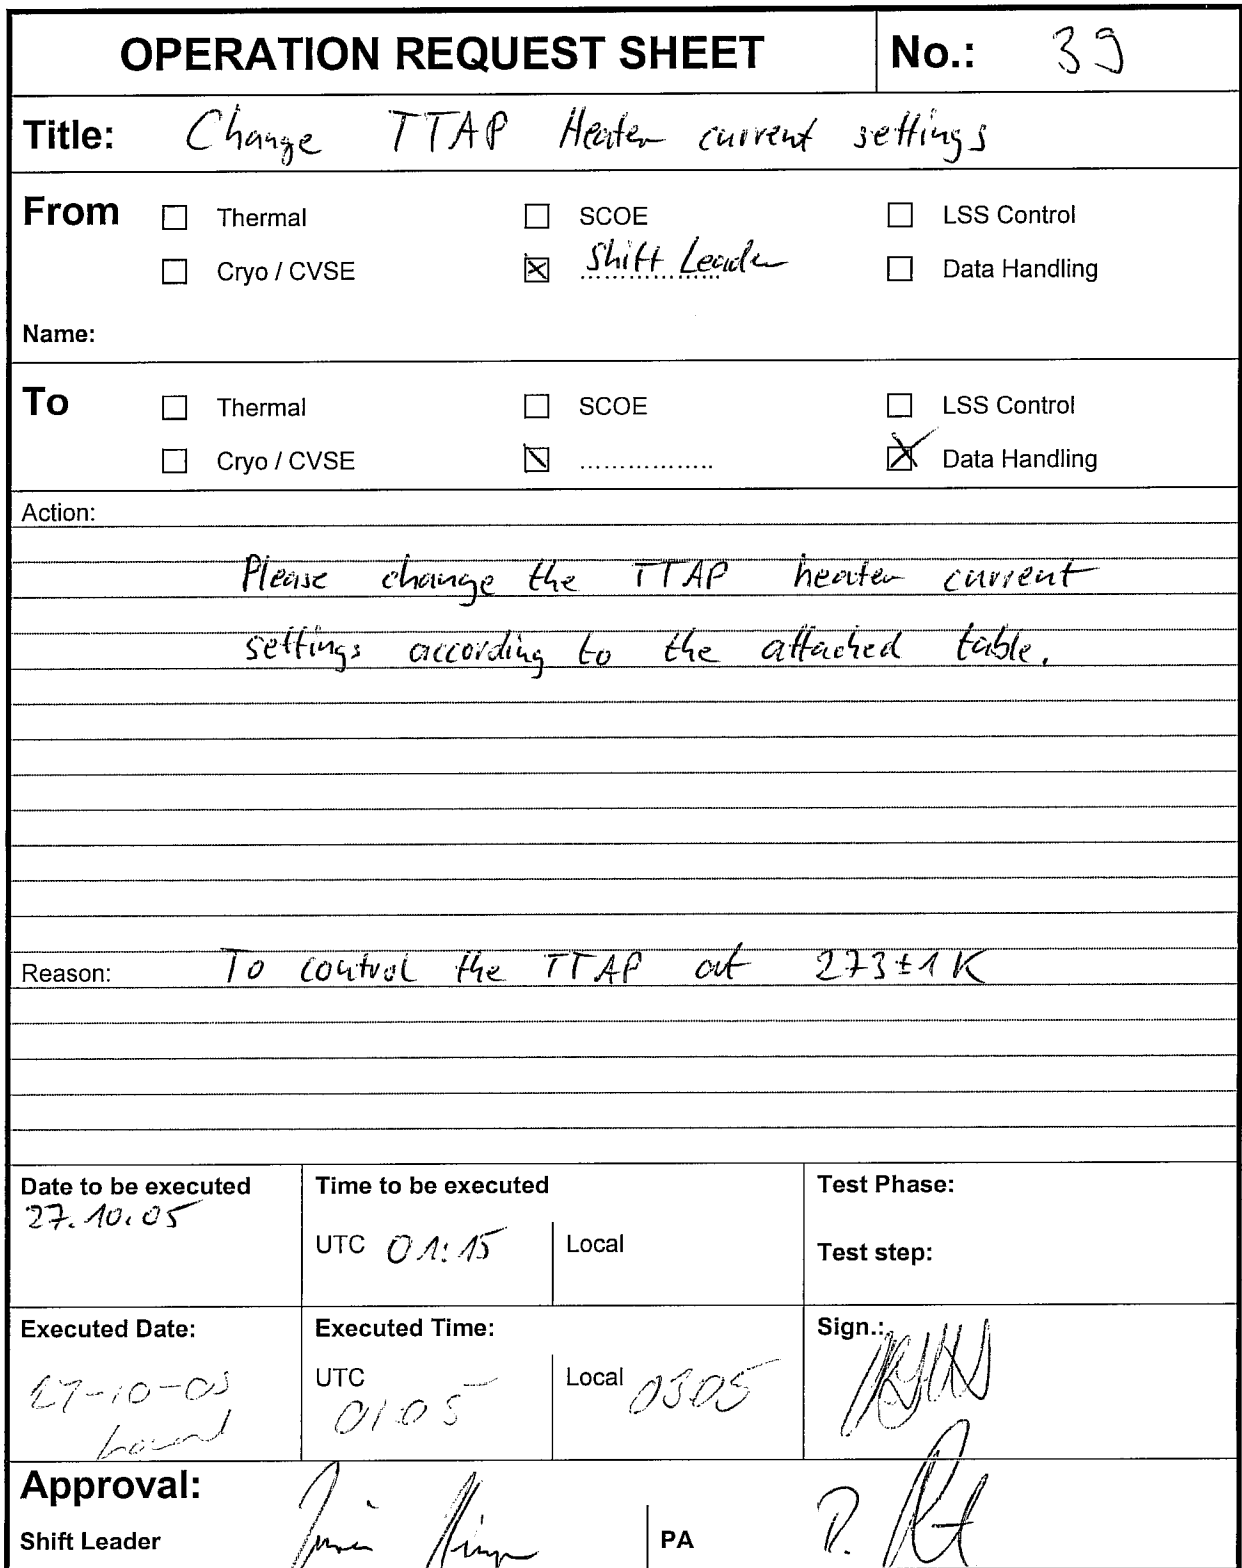 OPERATION REQUEST SHEET No.: 39
Title: Change TTAP Heater current settings
From ☐ Thermal ☐ SCOE ☐ LSS Control
☐ Cryo / CVSE ☒ Shift Leader ☐ Data Handling
Name:
To ☐ Thermal ☐ SCOE ☐ LSS Control
☐ Cryo / CVSE ☒ ................. ☒ Data Handling
Action:
Please change the TTAP heater current
settings according to the attached table.
Reason: To control the TTAP at 273±1K
Date to be executed Time to be executed Test Phase:
27.10.05
UTC 01:15 Local Test step:
Executed Date: Executed Time: Sign.:
27-10-05 UTC 0105 Local 0305
Approval:
Shift Leader PA